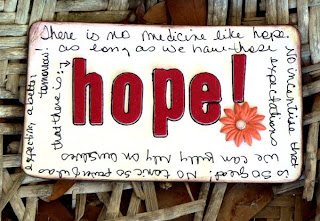 There is no medicine like hope.
No incentive that
is so great! No tonic so powerful as
expecting a better
tomorrow!
as long as we have these
expectations
We can fully rely on ourselves
that there is:
hope!